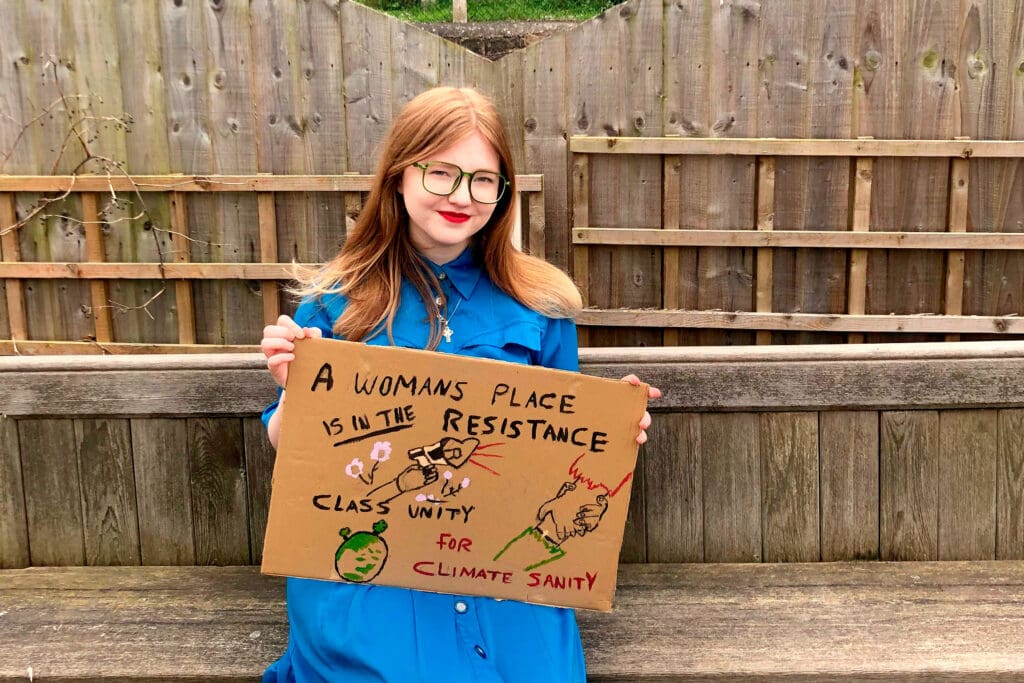 A WOMANS PLACE
IS IN THE RESISTANCE
CLASS UNITY
FOR
CLIMATE SANITY